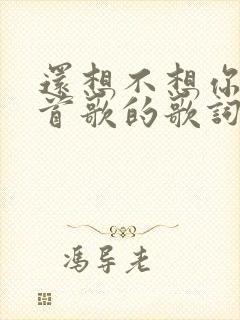 還想不想你
首歌的歌詞
馮导老